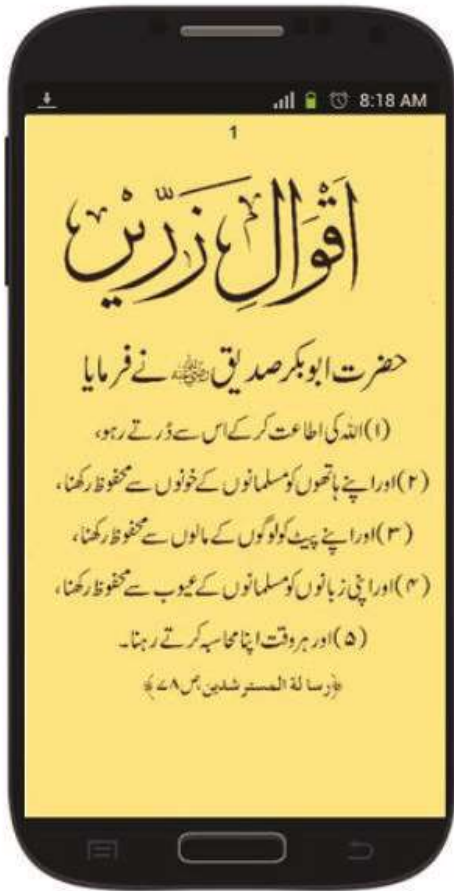 8:18 AM
1
اَقْوَالِ زَرِّیں
حضرت ابوبکر صدیق رضی اللہ عنہ نے فرمایا
(۱) اللہ کی اطاعت کر کے اس سے ڈرتے رہو،
(۲) اور اپنے ہاتھوں کو مسلمانوں کے خونوں سے محفوظ رکھنا،
(۳) اور اپنے پیٹ کو لوگوں کے مالوں سے محفوظ رکھنا،
(۴) اور اپنی زبانوں کو مسلمانوں کے عیوب سے محفوظ رکھنا،
(۵) اور ہر وقت اپنا محاسبہ کرتے رہنا۔
﴿رسالة المسترشدین ص ۷۸﴾